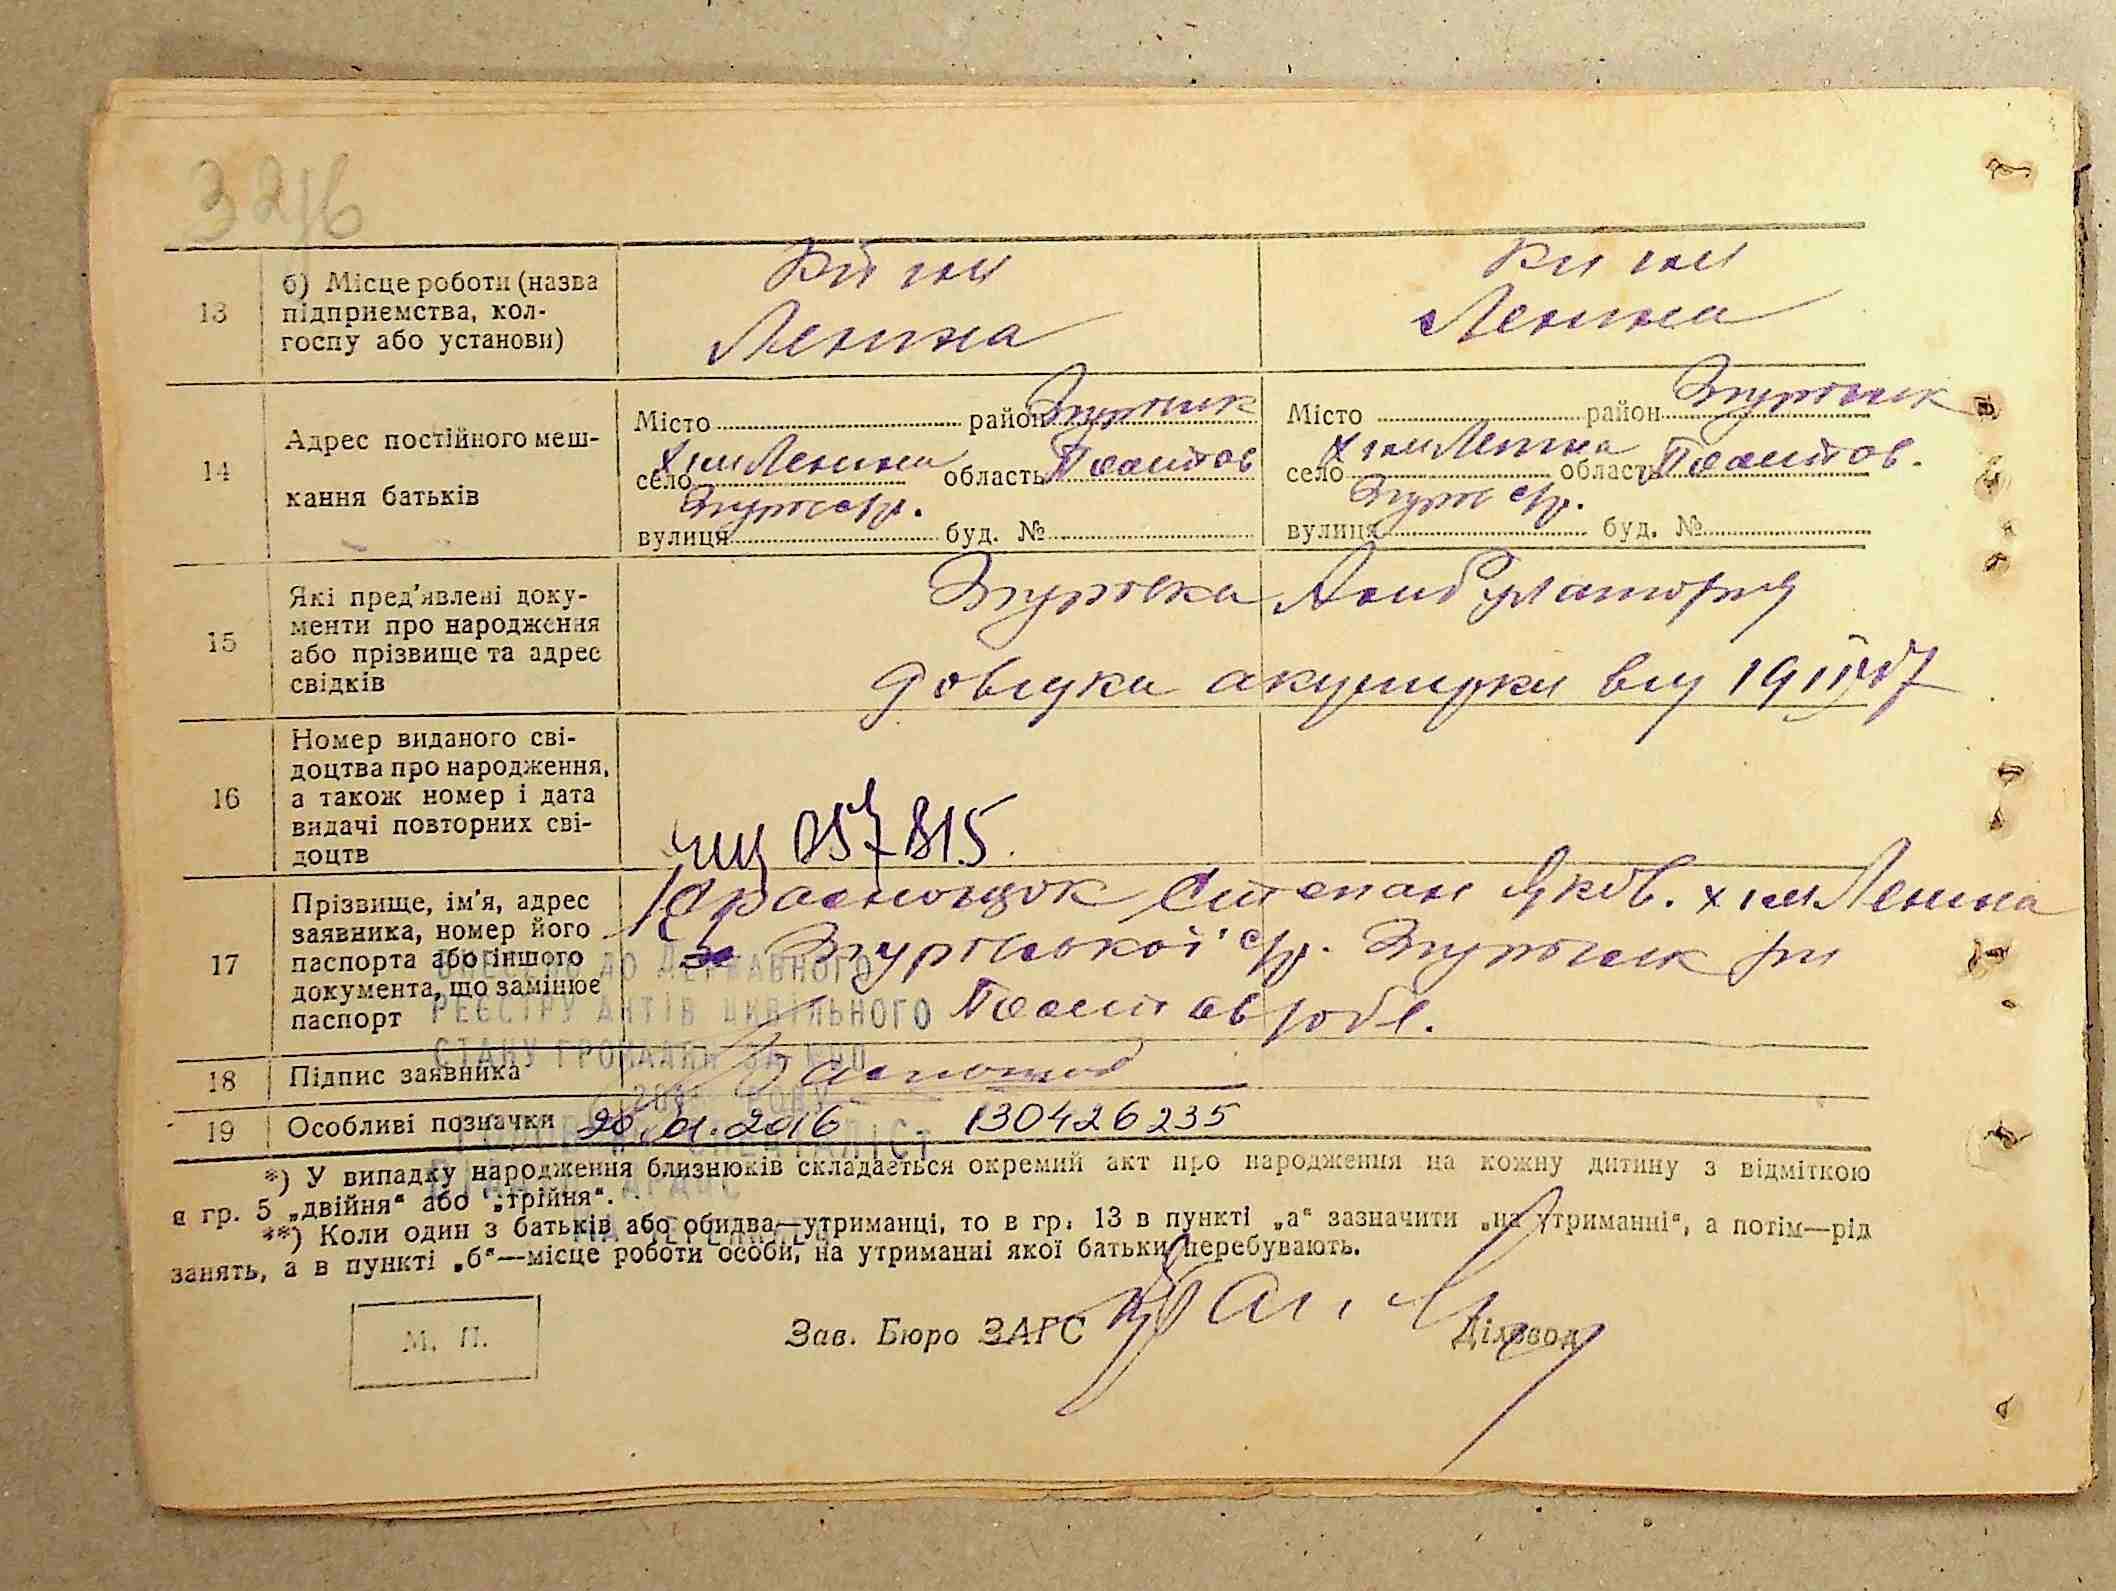 3216
13
б) Місце роботи (назва
підприємства, кол-
госпу або установи)
К-п ім
Леніна
К-п ім
Леніна
14
Адрес постійного меш-
кання батьків
Місто район Згурівськ
село Х ім Леніна область Полтов
Згурівс с/р.
вулиця буд. №
Місто район Згурівськ
село Х ім Леніна область Полтов.
Згурів с/р.
вулиця буд. №
15
Які пред'явлені доку-
менти про народження
або прізвище та адрес
свідків
Згурівска Амбулаторія
довідка акушерки від 19 ІІІ 47
16
Номер виданого сві-
доцтва про народження,
а також номер і дата
видачі повторних сві-
доцтв
057815.
17
Прізвище, ім'я, адрес
заявника, номер його
паспорта або іншого
документа, що замінює
паспорт
Красношок Степан Яков. х ім Леніна
Згурівської с/р. Згурівськ р-н
Полтов обл.
ВНЕСЕНО ДО ДЕРЖАВНОГО
РЕЄСТРУ АКТІВ ЦИВІЛЬНОГО
СТАНУ ГРОМАДЯН ЗА №
20 РОКУ
ГОЛОВНИЙ СПЕЦІАЛІСТ
18
Підпис заявника
19
Особливі позначки
20.01.2016 130426235
*) У випадку народження близнюків складається окремий акт про народження на кожну дитину з відміткою
в гр. 5 „двійня“ або „трійня“.
**) Коли один з батьків або обидва—утриманці, то в гр. 13 в пункті „а“ зазначити „на утриманні“, а потім—рід
занять, а в пункті „б“—місце роботи особи, на утриманні якої батьки перебувають.
М. П.
Зав. Бюро ЗАГС
Діловод